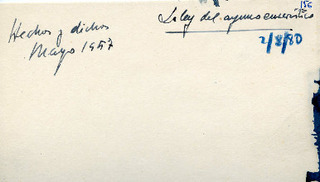 156
La ley del ayuno eucarístico
Hechos y dichos
Mayo 1957
2/8/80